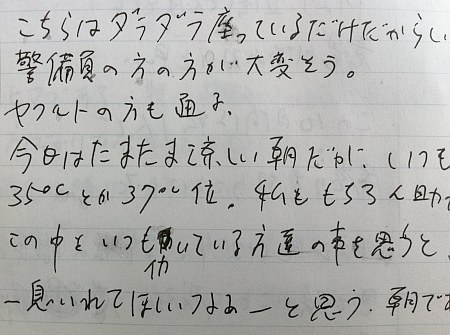 こちらはダラダラ座っているだけだからい
警備員の方の方が大変そう。
ヤクルトの方も通る、
今日はたまたま涼しい朝だが、いつも
35℃とか37℃位。私ももちろん助
この中をいつも働いている方達の事を思うと、
一息いれてほしいなあーと思う、朝で